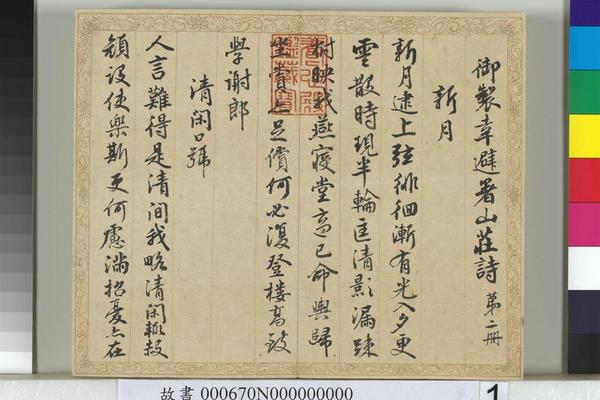 御製幸避暑山莊詩 第二冊
新月
新月遠上弦徘徊漸有光入夕更
雲散時現半輪匡清影漏疎
樹映我燕寢堂言已命輿歸
坐賞亦足償何必復登樓高致
學謝郎
清閑口號
人言難得是清閒我略清閑輒赧
顏設使樂斯更何慮滿招憂亦在
故書 000670N000000000
1